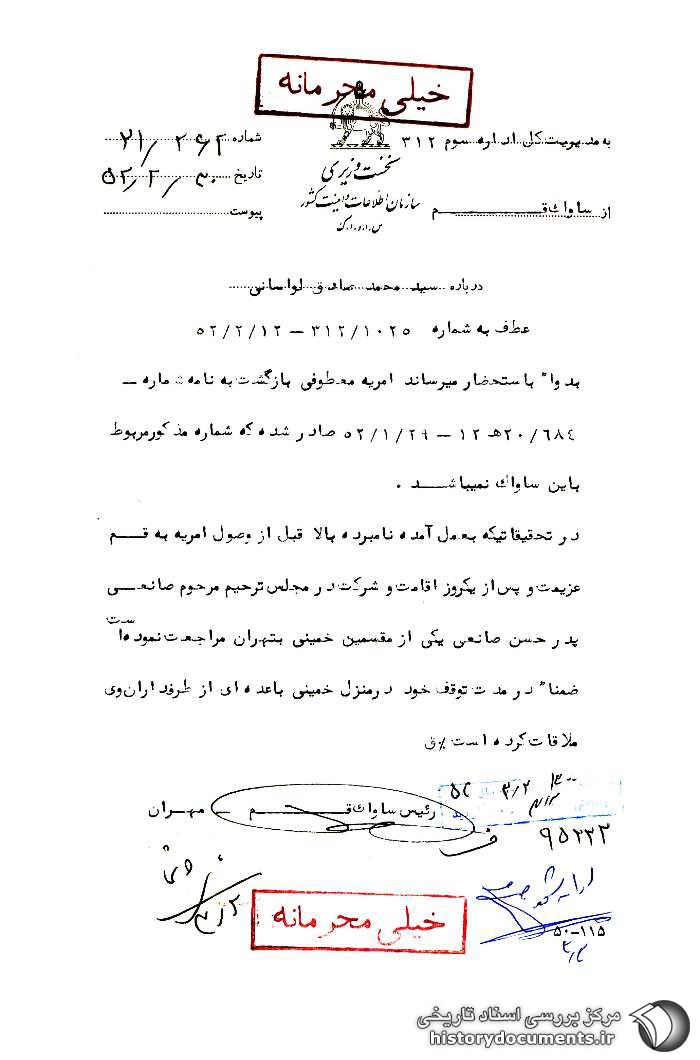 خیلی محرمانه
به مدیریت کل اداره سوم ۳۱۲
نخست وزیری
سازمان اطلاعات و امنیت کشور
س.ا.و.ا.ک
شماره
تاریخ ۵۲/۲/۳۰
پیوست
از ساواک قم
درباره سید محمد صادق لواسانی
عطف به شماره ۳۱۲/۱۰۲۵ – ۵۲/۲/۱۲
بدواً باستحضار میرساند امریه معطوفی بازگشت به نامه شماره –
۲۰/٦۸٤ه ۱۲ – ۵۲/۱/۲۹ صادر شده که شماره مذکور مربوط
باین ساواک نمیباشد .
در تحقیقاتیکه بعمل آمده نامبرده بالا قبل از وصول امریه به قم
عزیمت و پس از یکروز اقامت و شرکت در مجلس ترحیم مرحوم صانعی
پدر حسن صانعی یکی از مقسمین خمینی بتهران مراجعت نموده است
ضمناً در مدت توقف خود در منزل خمینی با عده ای از طرفداران وی
ملاقات کرده است
رئیس ساواک قم – مهران
۹۵۲۲۳
خیلی محرمانه
۵۰-۱۱۵
مرکز بررسی اسناد تاریخی
historydocuments.ir